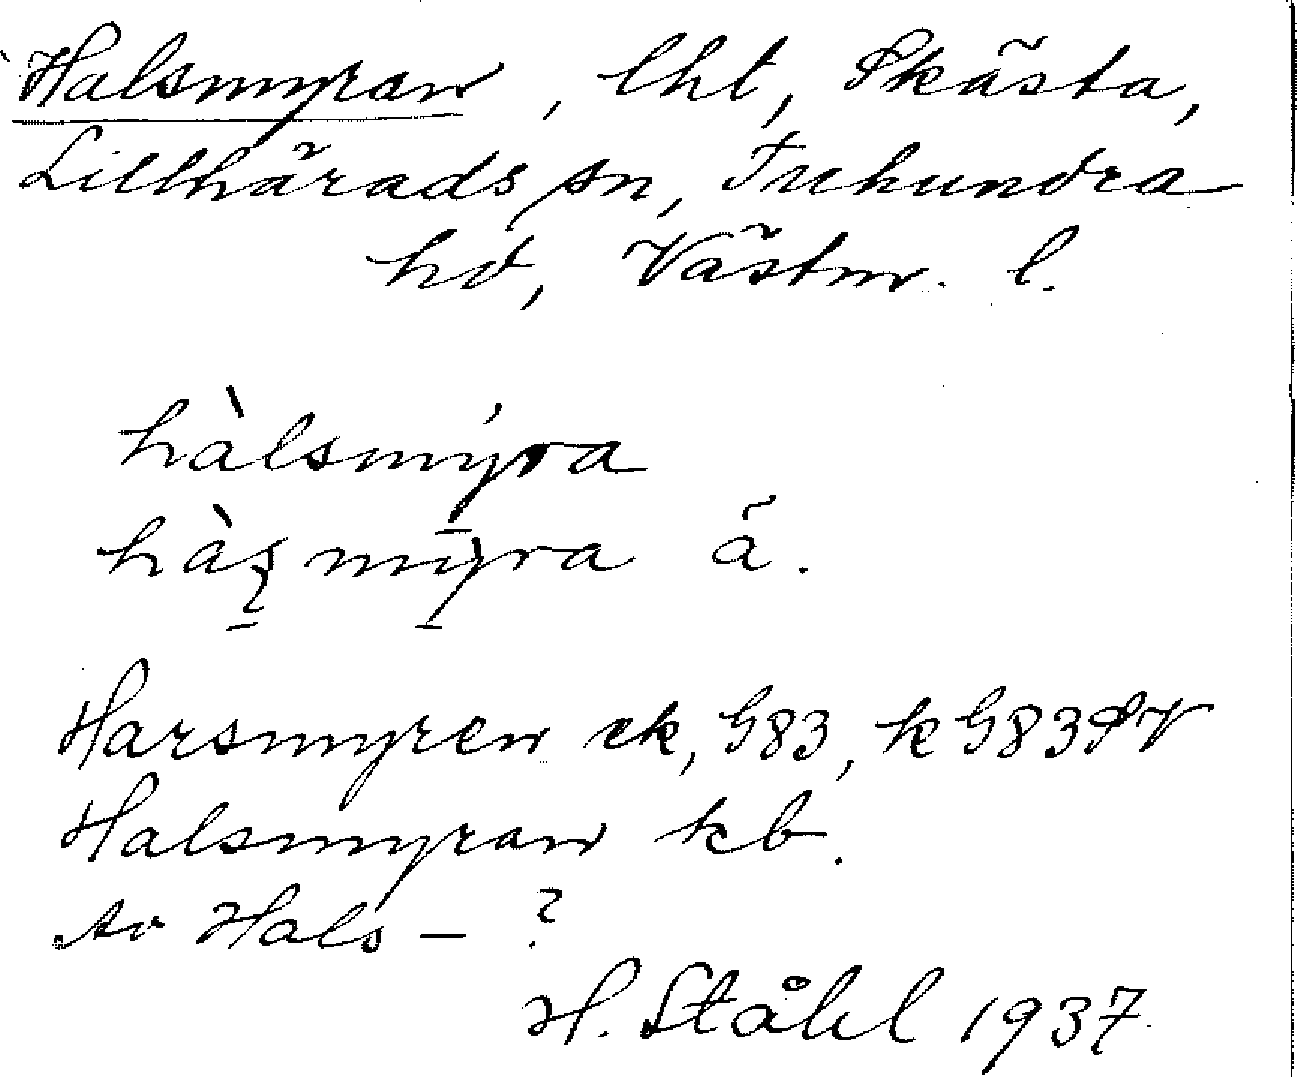 Halsmyran, lht, Skästa,
Lillhärads sn, Tuhundra
hd, Västm. l.
hàlsmýra
hàʂmy̱ra ä.
Harsmyren ek, G83, k G83 SV
Halsmyran kb.
Av Hals – ?
H. Ståhl 1937